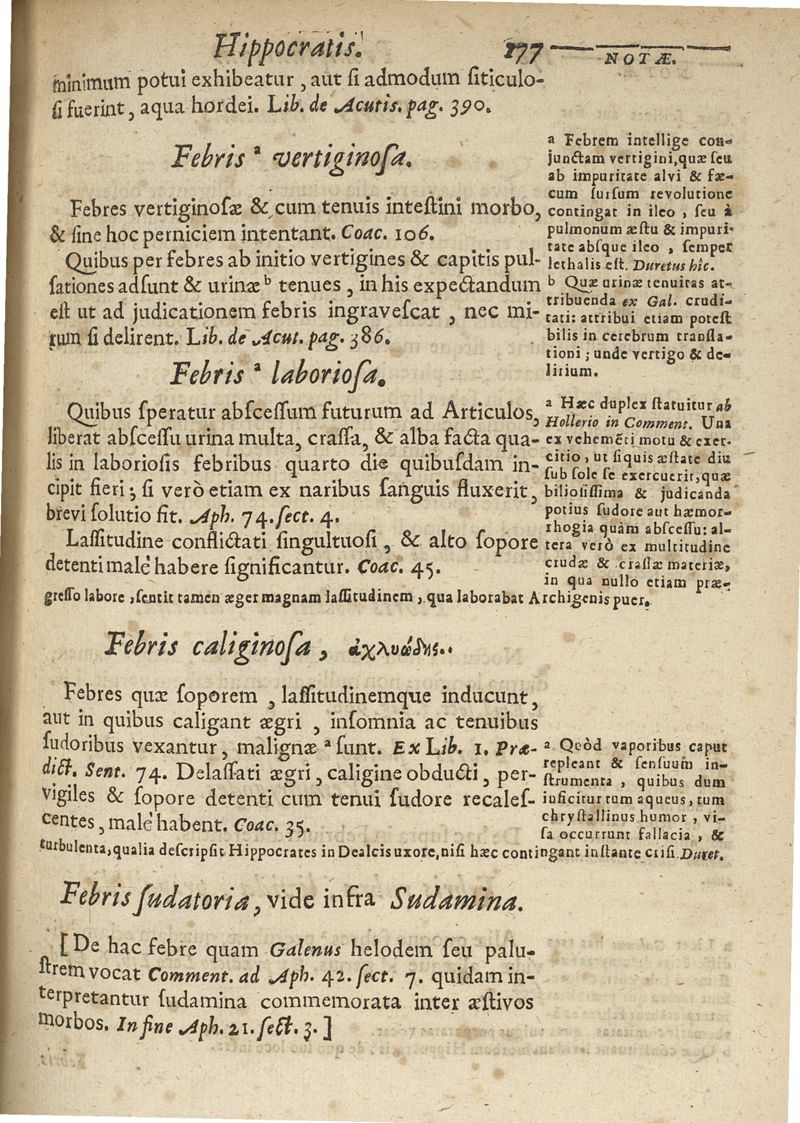 Hippocratis. 177 NOTÆ.
minimum potui exhibeatur, aut ſi admodum ſiticulo-
ſi fuerint, aqua hordei. Lib. de Acutis. pag. 390.
Febris ᵃ vertiginoſa.
Febres vertiginoſæ & cum tenuis inteſtini morbo,
& ſine hoc perniciem intentant. Coac. 106.
Quibus per febres ab initio vertigines & capitis pul-
ſationes adſunt & urinæ ᵇ tenues, in his expectandum
eſt ut ad judicationem febris ingraveſcat, nec mi-
rum ſi delirent. Lib. de Acut. pag. 386.
a Febrem intellige con-
junctam vertigini, quæ ſeu
ab impuritate alvi & fæ-
cum ſurſum revolutione
contingat in ileo, ſeu à
pulmonum æſtu & impuri-
tate abſque ileo, ſemper
lethalis eſt. Duretus hîc.
b Quæ urinæ tenuitas at-
tribuenda ex Gal. crudi-
tati: attribui etiam poteſt
bilis in cerebrum tranſla-
tioni; unde vertigo & de-
lirium.
Febris ᵃ laborioſa.
Quibus ſperatur abſceſſum futurum ad Articulos,
liberat abſceſſu urina multa, craſſa, & alba facta qua-
lis in laborioſis febribus quarto die quibuſdam in-
cipit fieri; ſi verò etiam ex naribus ſanguis fluxerit,
brevi ſolutio fit. Aph. 74. ſect. 4.
Laſſitudine conflictati ſingultuoſi, & alto ſopore
detenti malè habere ſignificantur. Coac. 45.
a Hæc duplex ſtatuitur ab
Hollerio in Comment. Una
ex vehemẽti motu & exer-
citio, ut ſi quis æſtate diu
ſub ſole ſe exercuerit, quæ
bilioſiſſima & judicanda
potius ſudore aut hæmor-
rhogia quàm abſceſſu: al-
tera verò ex multitudine
crudæ & craſſæ materiæ,
in qua nullo etiam præ-
greſſo labore, ſentit tamen æger magnam laſſitudinem, qua laborabat Archigenis puer.
Febris caliginoſa, ἀχλυώδης..
Febres quæ ſoporem, laſſitudinemque inducunt,
aut in quibus caligant ægri, inſomnia ac tenuibus
ſudoribus vexantur, malignæ ᵃ ſunt. Ex Lib. 1. Præ-
dict. Sent. 74. Delaſſati ægri, caligine obducti, per-
vigiles & ſopore detenti cum tenui ſudore recaleſ-
centes, malè habent. Coac. 35.
a Quòd vaporibus caput
repleant & ſenſuum in-
ſtrumenta, quibus dum
inficitur tum aqueus, tum
chryſtallinus humor, vi-
ſa occurrunt fallacia, &
turbulenta, qualia deſcripſit Hippocrates in Dealcis uxore, niſi hæc contingant inſtante criſi. Duret.
Febris ſudatoria, vide infra Sudamina.
[De hac febre quam Galenus helodem ſeu palu-
ſtrem vocat Comment. ad Aph. 42. ſect. 7. quidam in-
terpretantur ſudamina commemorata inter æſtivos
morbos. In fine Aph. 21. ſect. 3.]